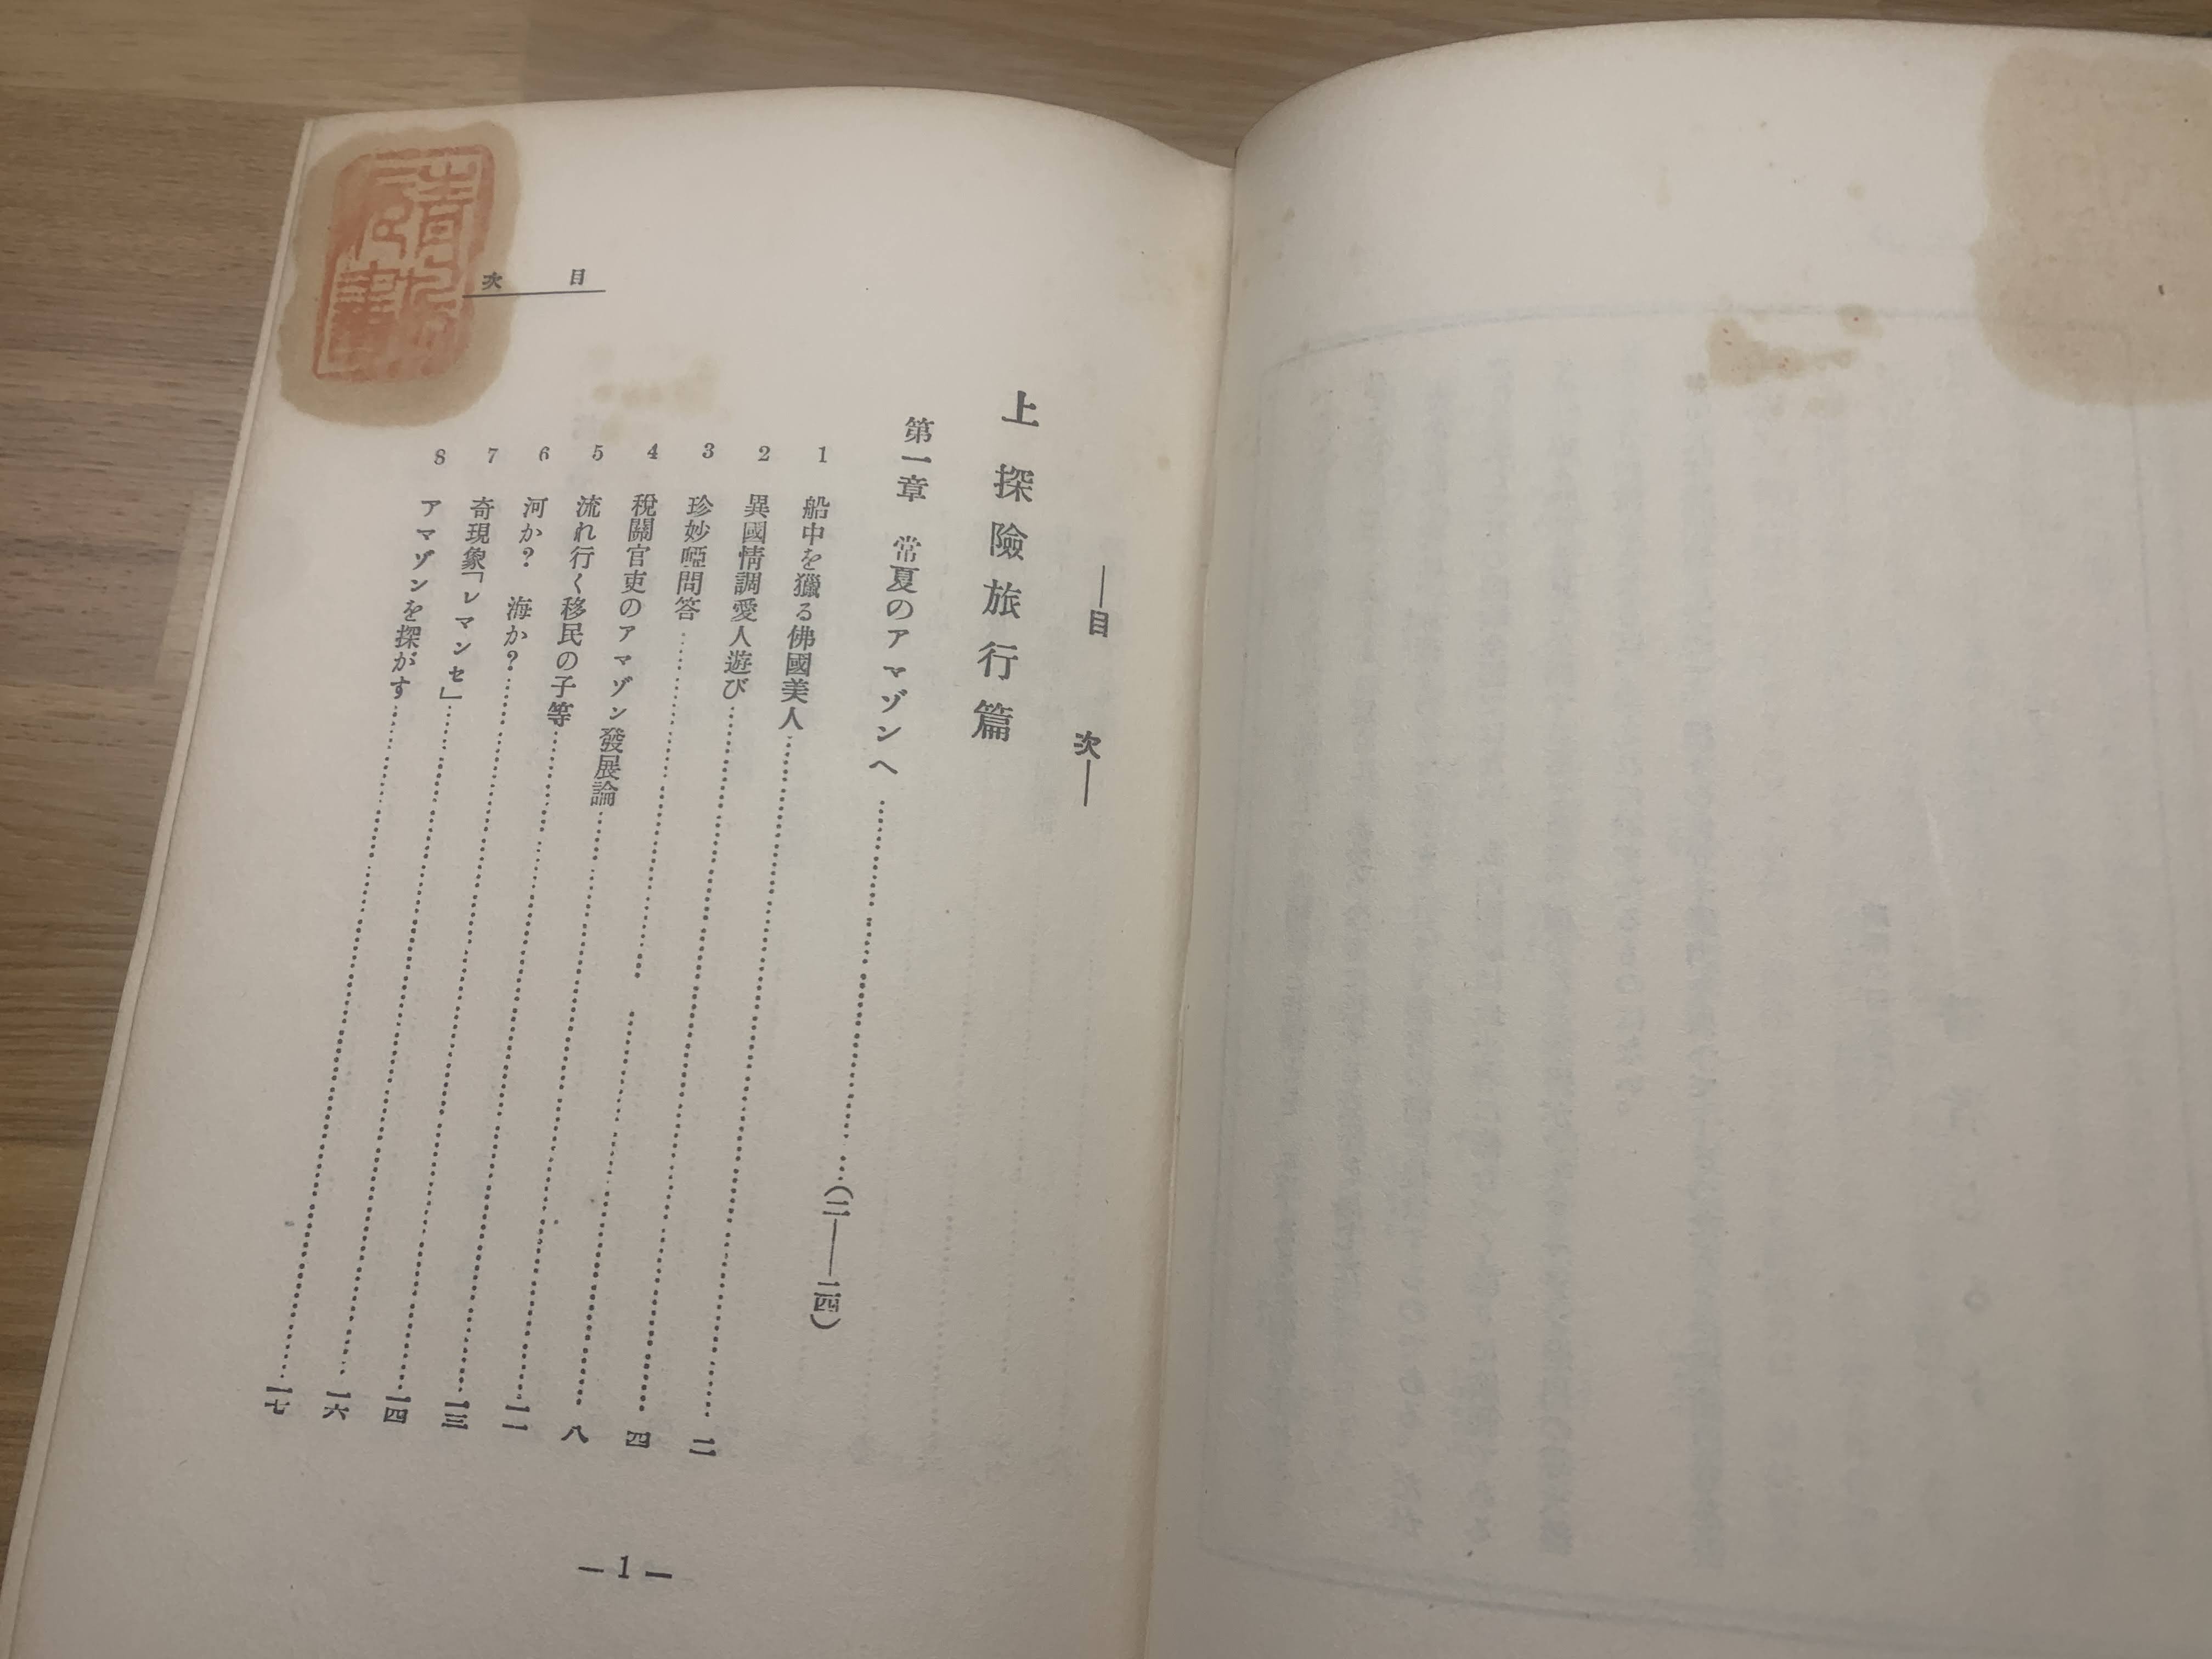 目次
―目次―
上 探險旅行篇
第一章 常夏のアマゾンへ……(二――二四)
1 船中を獵る佛國美人……二
2 異國情調愛人遊び……四
3 珍妙啞問答……八
4 稅關官吏のアマゾン發展論……一一
5 流れ行く移民の子等……一三
6 河か? 海か?……一四
7 奇現象「レマンセ」……一六
8 アマゾンを探がす……一七
―1―